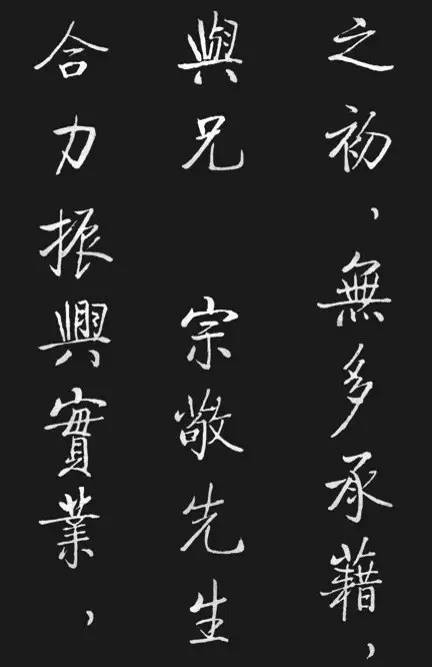 之初，無多承藉，
與兄 宗敬先生
合力振興實業，